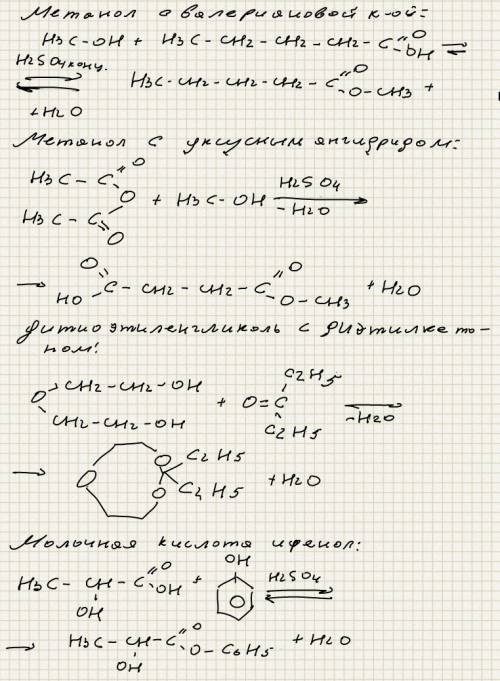 Метанол с валериановой к-ой:
H3C-OH + H3C-CH2-CH2-CH2-C=O OH ⇌
H2SO4 конц. ⇌ H3C-CH2-CH2-CH2-C=O O-CH3 +
+H2O
Метанол с уксусным ангидридом:
H3C-C=O
O + H3C-OH H2SO4 -H2O →
H3C-C=O
→ O=C HO -CH2-CH2-C=O O-CH3 + H2O
Дитиоэтиленгликоль с диэтилкето-
ном:
O CH2-CH2-OH CH2-CH2-OH + O=C C2H5 C2H5 -H2O
→ O O O C2H5 C2H5 + H2O
Молочная кислота и фенол:
H3C-CH-C=O OH OH + OH H2SO4 ⇌
→ H3C-CH-C=O OH O-C6H5 + H2O